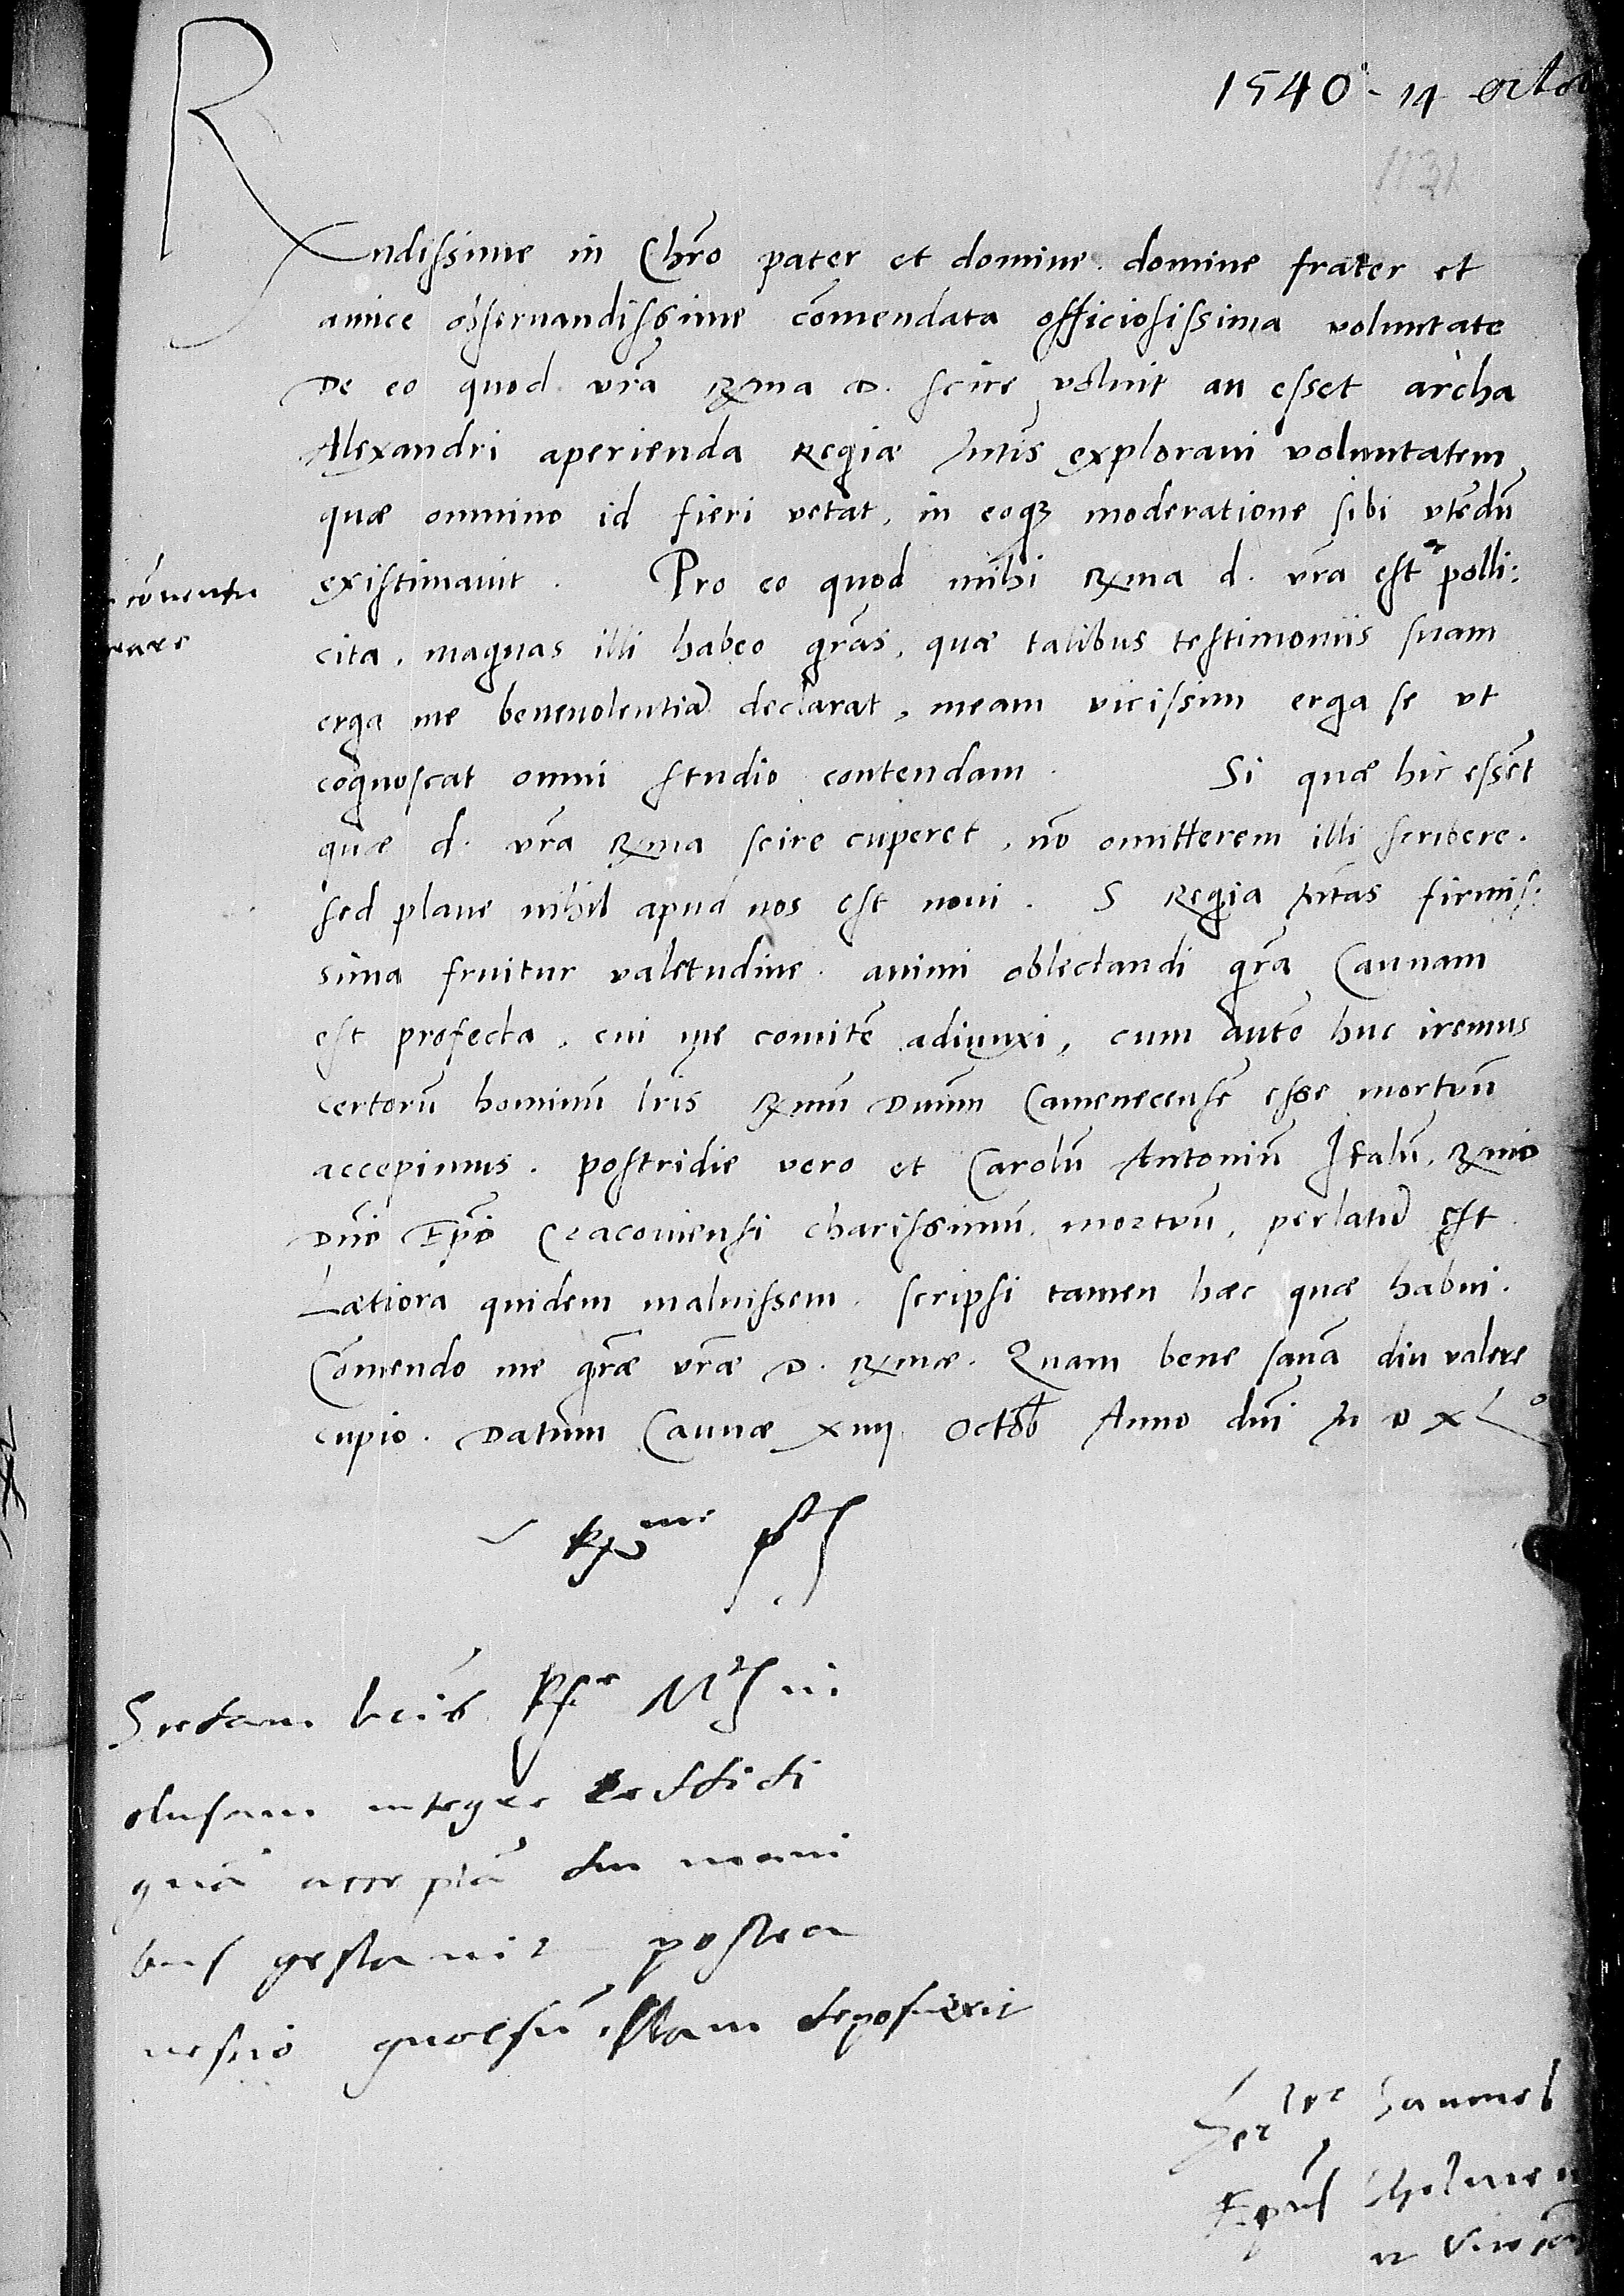 1540 - 14 octo
1131
Rndissime in Chro pater et domine. domine frater et
amice observandissime comendata officiosissima voluntate
De eo quod vra Rma D. scire voluit an esset archa
Alexandri aperienda Regiae Mtis exploravi voluntatem,
quae omnino id fieri vetat, in eoq3 moderatione sibi vtedu
existimavit. Pro eo quod mihi Rma d. vra est polli:
conventu
cita, magnas illi habeo gras, quae talibus testimoniis suam
erga me benevolentia declarat, meam vicissim erga se vt
cognoscat omni studio contendam. Si quae hic essẽt
quae d. vra Rma scire cuperet, no omitterem illi scribere.
sed plane nihil apud nos est novi. S Regia Mtas firmis:
sima fruitur valetudine. animi oblectandi gra Caunam
est profecta, cui me comitẽ adiunxi, cum autẽ huc iremus
certorũ hominũ lris Rmũ Dnũm Camenecensẽ esse mortuũ
accepimus. postridie vero et Carolũ Antoniũ Italũ, Rmo
Dno Epo Cracoviensi charissimũ, mortuũ, perlatũ est.
Laetiora quidem maluissem, scripsi tamen haec quae habui.
Comendo me grae vrae D. Rmae. Quam bene sanã diu valere
cupio. Datum Caunae xiiij Octob Anno dni M D XLo
integre
quã acceptã diu mani
bus gestavit postea
nescio quorsũ illam deposuerit
Samuel
Epus Chelmen